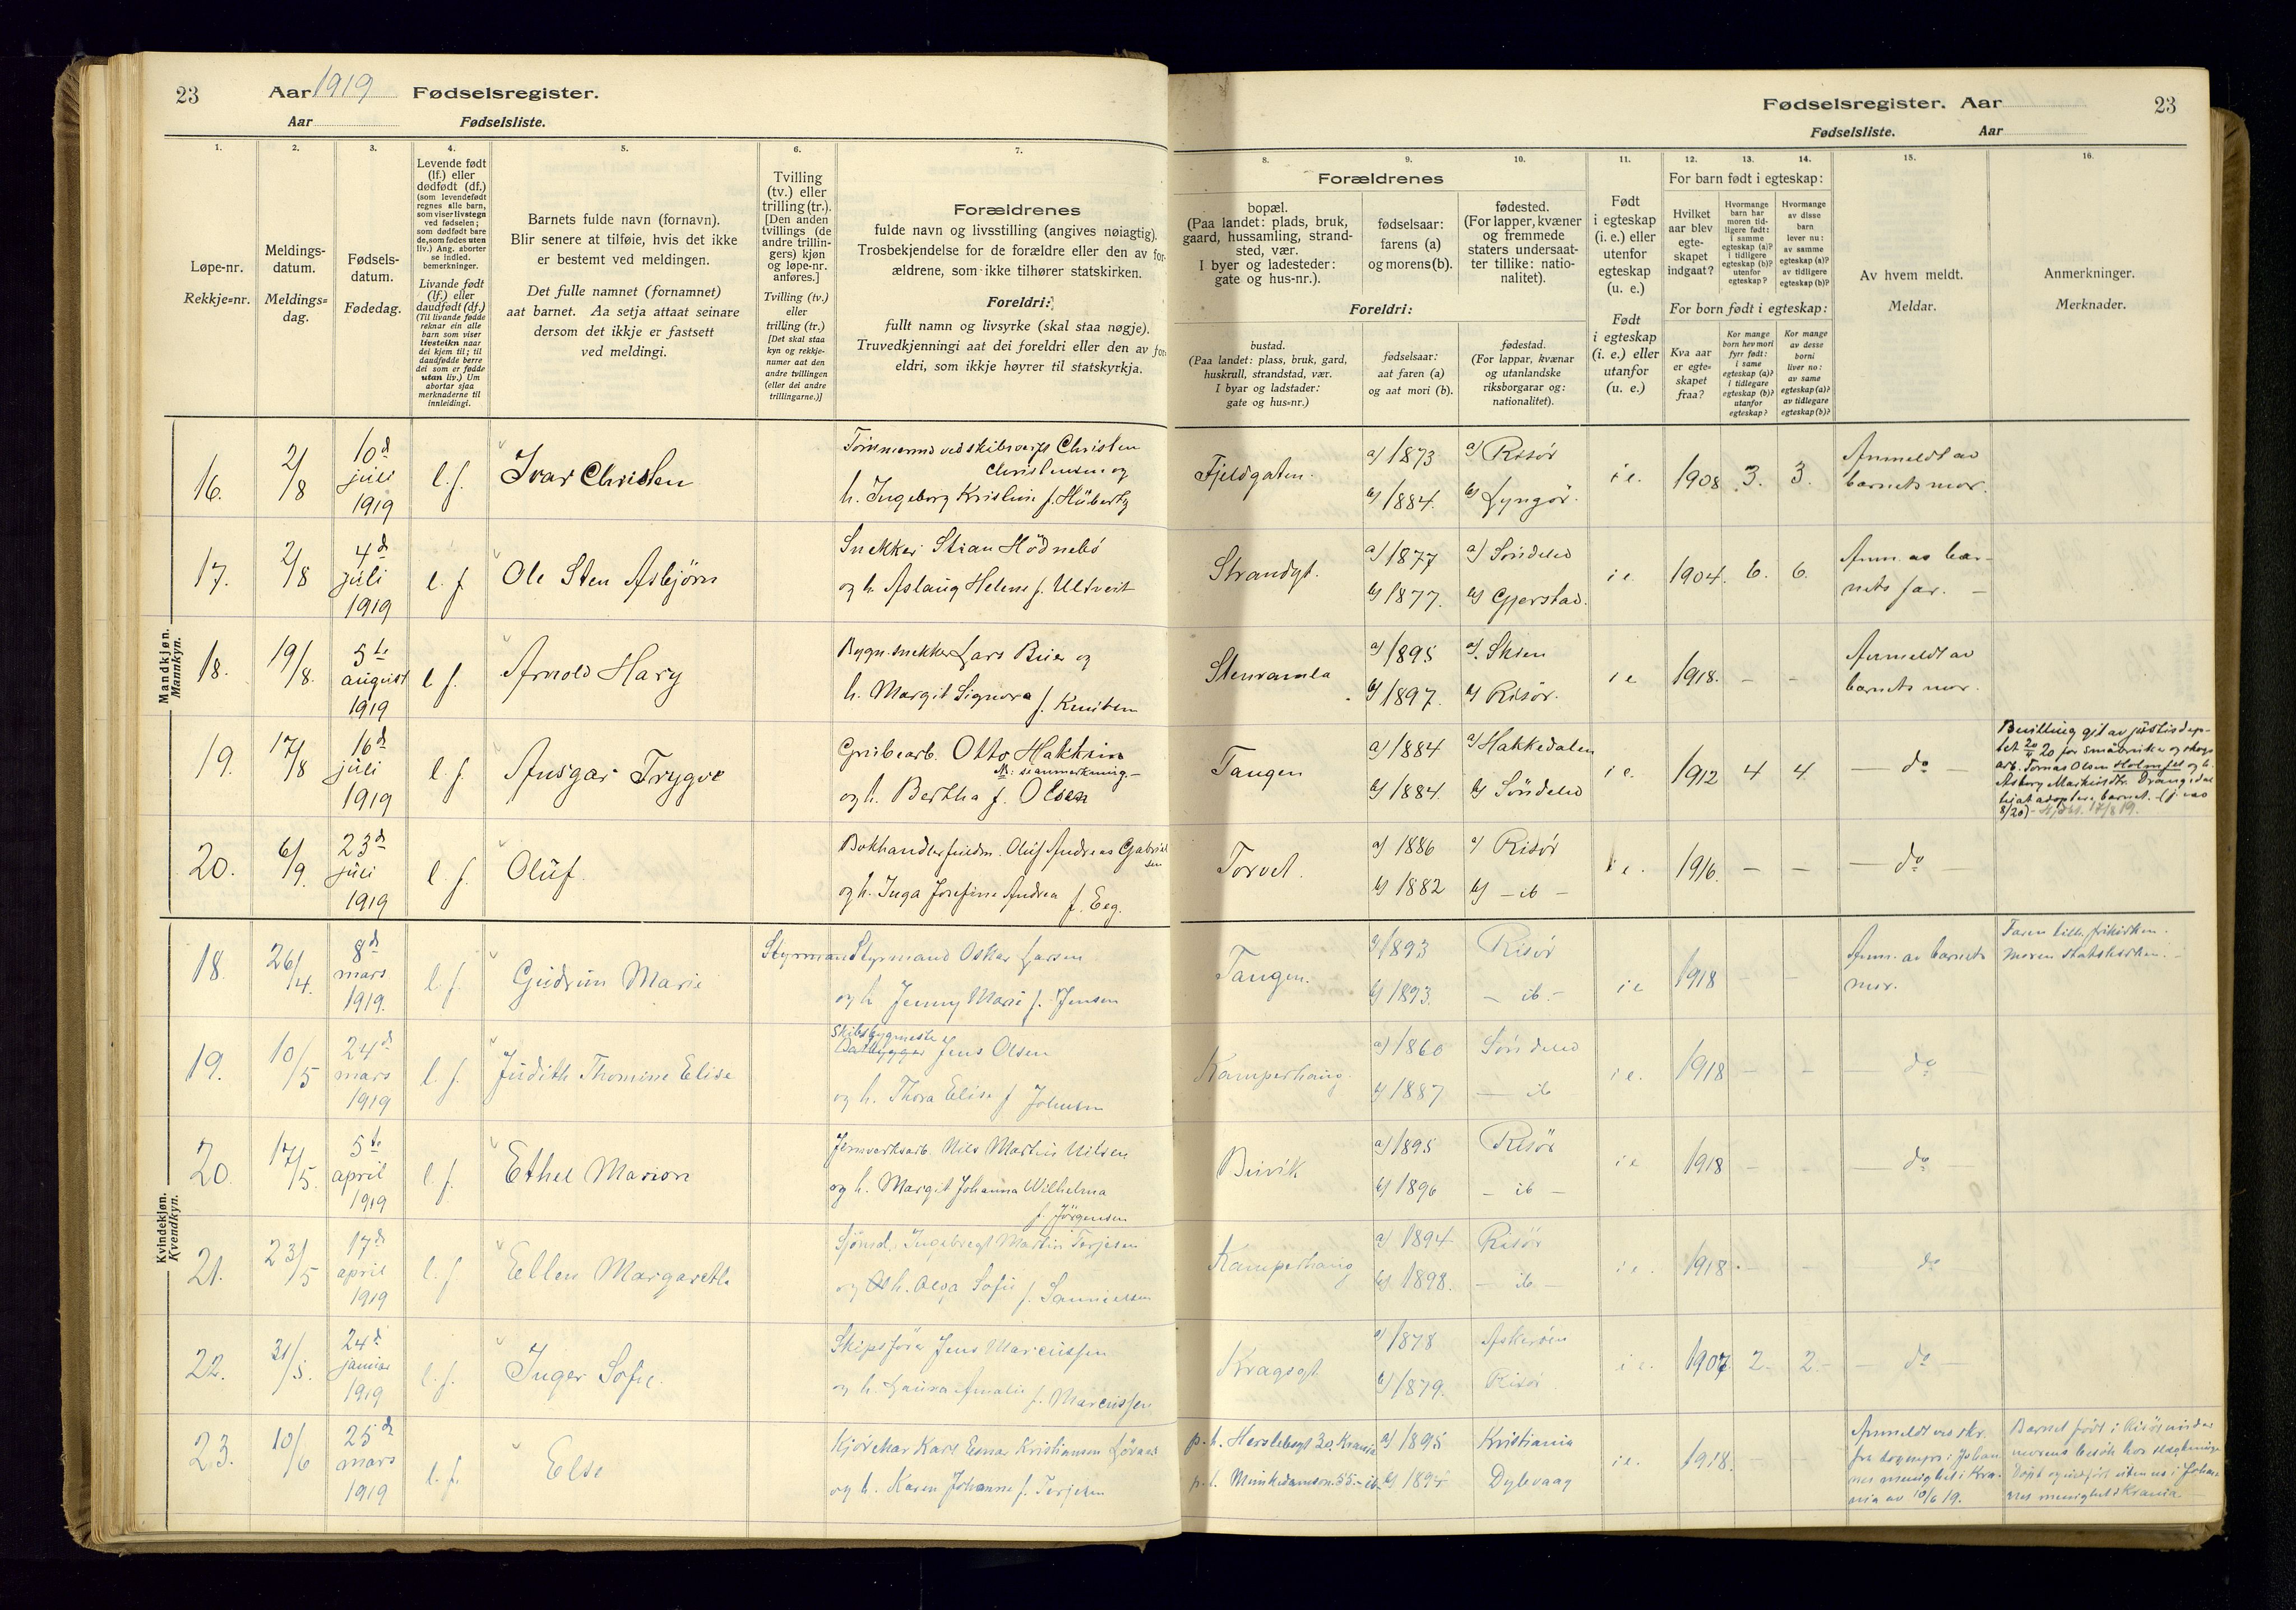 23
Aar 1919 Fødselsregister.
Aar Fødselsliste.
Fødselsregister. Aar
23
Fødselsliste. Aar
1.
Løpe-nr.
Rekkje-nr.
2.
Meldings-
datum.
Meldings-
dag.
3.
Fødsels-
datum.
Fødedag.
4.
Levende født
(lf.) eller
dødfødt (df.)
(som levendefødt
regnes alle barn,
som viser livstegn
ved fødselen;
som dødfødt bare
de, som fødes uten
liv.) Ang. aborter
se indled.
bemerkninger.
Livande født
(lf.) eller
daudfødt (df.)
(Til livande fødde
reknar ein alle
barn som viser
livsteikn naar
dei kjem til; til
daudfødde berre
dei som er fødde
utan liv.) Um
abortar sjaa
merknaderne til
innleidingi.
5.
Barnets fulde navn (fornavn).
Blir senere at tilføie, hvis det ikke
er bestemt ved meldingen.
Det fulle namnet (fornamnet)
aat barnet. Aa setja attaat seinare
dersom det ikkje er fastsett
ved meldingi.
6.
Tvilling
(tv.) eller
trilling (tr.).
[Den anden
tvillings (de
andre trillin-
gers) kjøn
og løpe-nr.
anføres.]
Tvilling (tv.)
eller
trilling (tr.)
[Det skal staa
kyn og rekkje-
numer aat den
andre tvillingen
(eller dei andre
trillingarne.)]
7.
Forældrenes
fulde navn og livsstilling (angives nøiagtig).
Trosbekjendelse for de forældre eller den av for-
ældrene, som ikke tilhører statskirken.
Foreldri:
fullt namn og livsyrke (skal staa nøgje).
Truvedkjenningi aat dei foreldri eller den av for-
eldri, som ikkje høyrer til statskyrkja.
Forældrenes
8.
bopæl.
(Paa landet: plads, bruk,
gaard, hussamling, strand-
sted, vær.
I byer og ladesteder:
gate og hus-nr.).
9.
fødselsaar:
farens (a)
og morens (b).
10.
fødested.
(For lapper, kvæner
og fremmede
staters undersaat-
ter tillike: natio-
nalitet).
Foreldri:
bustad.
(Paa landet: plass, bruk, gard,
huskrull, strandstad, vær.
I byar og ladstader:
gate og hus-nr.)
fødselsaar:
aat faren (a)
og aat mori (b).
fødestad.
(For lappar, kvænar
og utanlandske
riksborgarar og:
nationalitet).
11.
Født
i egteskap
(i. e.) eller
utenfor
egteskap
(u. e.)
Født
i egteskap
(i. e.) eller
utanfor
(u. e.)
12. 13. 14.
For barn født i egteskap:
Hvilket
aar blev
egte-
skapet
indgaat?
Hvormange
barn har
moren tid-
ligere født:
i samme
egteskap (a)?
i tidligere
egteskap (b)?
utenfor
egteskap?
Hvormange
av disse
barn
lever nu:
av samme
egteskap (a)?
av tidligere
egteskap (b)?
For born født i egteskap:
Kva aar
er egte-
skapet
fraa?
Kor mange
born hev mori
fyrr født:
i same
egteskap (a)?
i tidlegare
egteskap (b)?
utanfor
egteskap?
Kor mange
av desse
borni
liver no:
av same
egteskap (a)?
av tidlegare
egteskap (b)?
15.
Av hvem meldt.
Meldar.
16.
Anmerkninger.
Merknader.
Mandkjøn.
Mannkyn.
16. 2/8 10d juli 1919 l. f. Ivar Christen
Christen
Christensen og
h. Ingeborg Kristine f. Hübertz
Fjeldgaten. a) 1873 a) Risør
b) 1884. b) Lyngör.
i e. 1908 3. 3. Anmeldt av
barnets mor.
17. 2/8 4d juli 1919 l. f. Ole Sten Asbjörn
Snekker Stian Hödnebö
og h. Aslaug Helene f. Ultveit
Strandgt. a) 1877 a) Söndeled
b) 1877. b) Gjerstad.
i e. 1904. 6. 6. Anm. av bar-
nets far. -
18. 19/8. 5te august 1919 l f. Arnold Hary
Bygn. snekker Lars Bier og
h. Margit Signora f. Knutsen
Stenramla a) 1895 a). Skien
b) 1897. b) Risör.
i e 1918. - - Anmeldt av
barnets mor.
19. 17/8 16d juli 1919 l. f. Ansgar Trygve
Grubearb. Otto Hakkin
N: se anmerkning. -
og h. Bertha f. Olsen
Tangen a) 1884 a) Hakkedalen
b) 1884. b) Söndeled
i e. 1912 4 4. - do -
Bevilling git av justisdep-
tet 20/2 20 for småbruker og skogs
arb. Tomas Olsen Holmset og h.
Asborg Markusdtr. Drangedal
til at adoptere barnet. -
20. 6/9. 23d juli 1919 l. f. Oluf.
Oluf Andreas Gabriel
sen
og h. Inga Josefine Andrea f. Eeg.
Torvet. a) 1886 a) Risör
b) 1882 b) - ib -
i e. 1916. - - - do -
Kvindekjøn.
Kvendkyn.
18. 26/4. 8d mars 1919. l. f. Gudrun Marie
Styrmand Styrmand Oskar Larsen
og h Jenny Marie f. Jensen
Tangen. a) 1893 Risör
b) 1893. - ib. -
i e 1918 - - Anm. av barnets
mor.
Faren tilh. frikirken.
Moren statskirken. -
19. 10/5 24d mars 1919 l. f. Judith Thomine Elise
Skibsbygmester
Baatbygger Jens Olsen
og h. Thora Elise f Johnsen
Kamperhaug. a) 1860 Söndeled
b) 1887 - ib
i e. 1918 - - - do
20. 17/5. 5te april 1919 l. f. Ethel Marion
Jernverksarb. Nils Martin Nilsen
og h. Margit Johanna Wilhelma
f. Jörgensen
Buvik a) 1895 Risör
b) 1896 - ib -
i e 1918 - - - do
21. 23/5 17d april 1919 l. f. Ellen Margarethe
Sjömd. Ingebregt Martin Terjesen
og h. Olga Sofie f. Samuelsen
Kamperhaug a) 1894 Risör
b) 1898. - ib -
i e. 1918. - - do
22. 31/5. 24d januar 1919 l. f. Inger Sofie.
Skipsförer Jens Marcussen
og h. Laura Amalie f. Marcussen
Kragsgt. a) 1878 Askeröen
b) 1879. Risör
i e. 1907 2. 2. - do -
23. 10/6 25d mars 1919 l. f. Else
Karl Einar Kristiansen
og h. Karen Johanne f. Terjesen
p. t. Herslebsgt 30 Krania a) 1895 Kristiania
p. t. Munkedamsvn. 55. - ib. b) 1894 Dybvaag
i e. 1918. - - Anmeldt ved skr.
fra sognepr. i Johan
nes menighet i Kra-
nia av 10/6 19.
Barnet født i Risör under
morens besök hos slegtninge
Döpt og indført i Johan
nes menighet i Krania. -